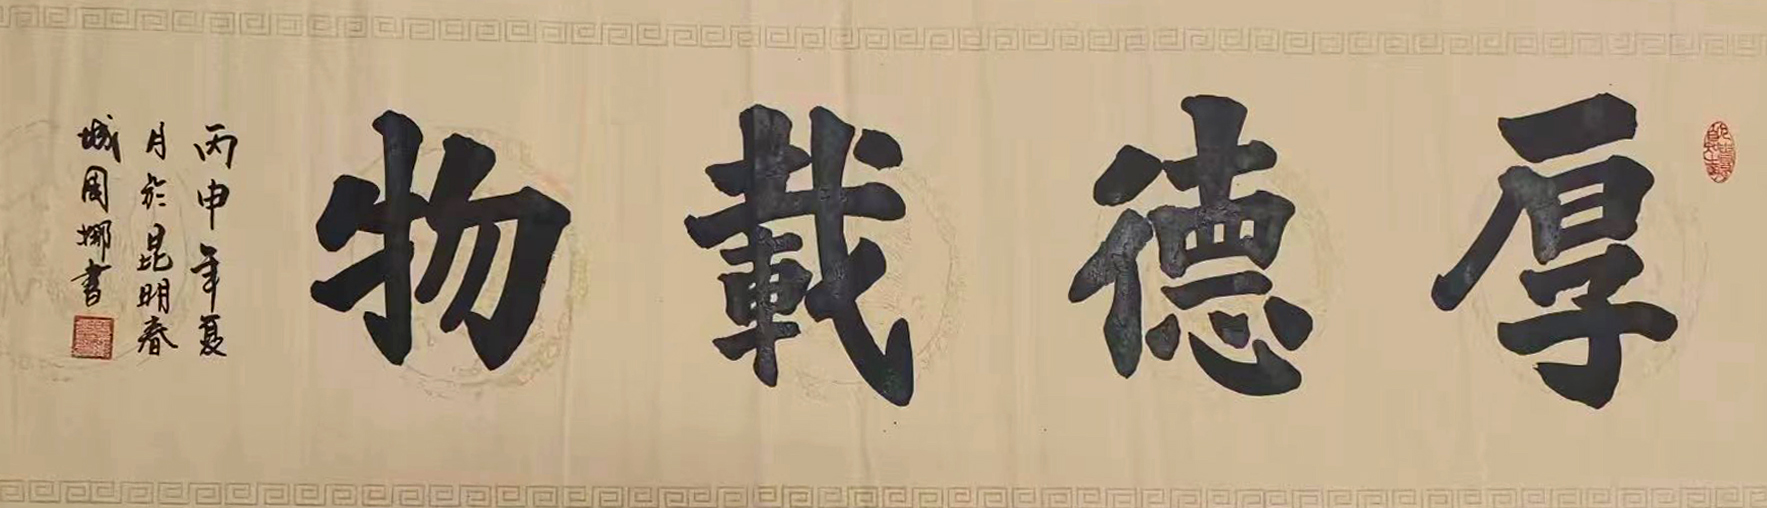 厚德載物
丙申年夏
月於昆明春
城周娜书